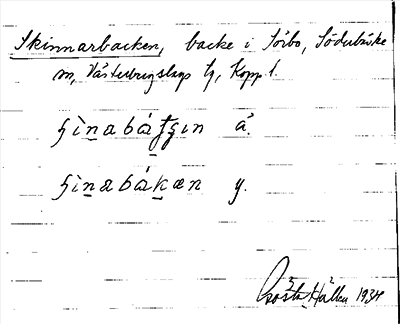 Skinnarbacken, backe i Sörbo, Söderbärke
sn, Västerbergslags tg, Kopp. l.
ʃìnabátʃin ä.
ʃìnabákæn y.
Gösta Hallen 1934